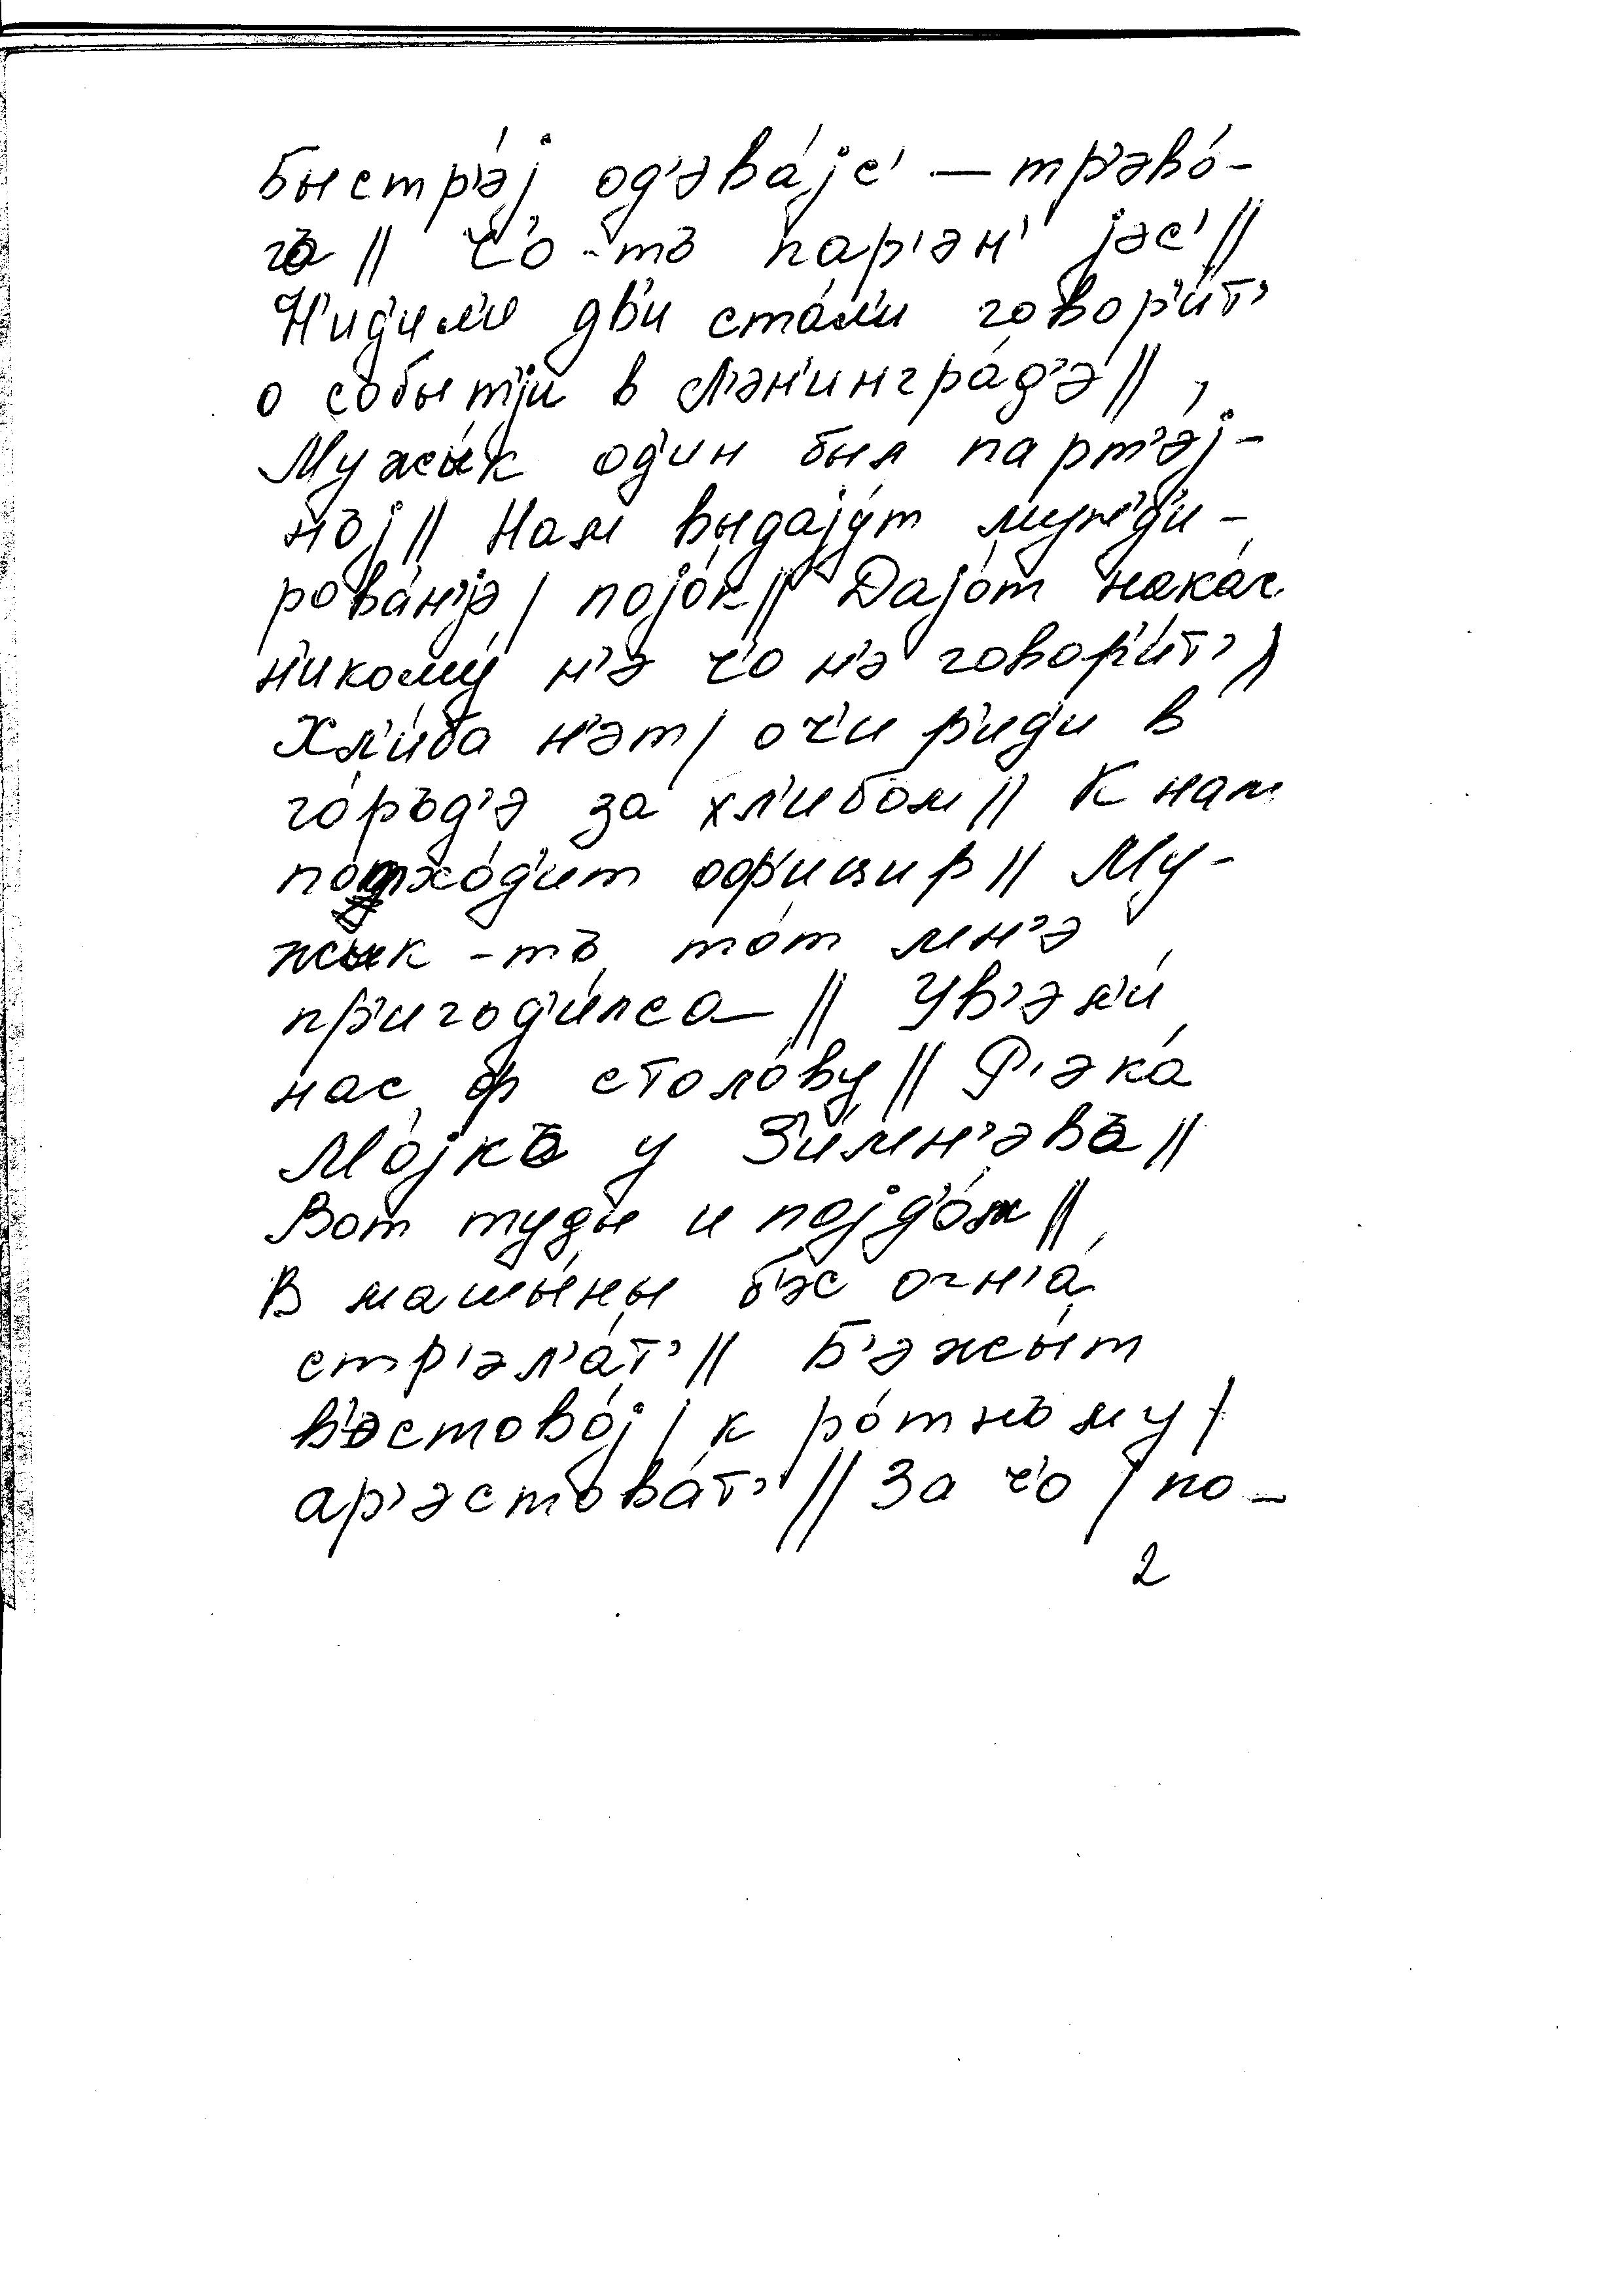 быстр'э́j од'эва́jс' — тр'эво́-
гъ // ч'о-тъ пар'эн' jэс' //
Н'ид'ил'и дв'и ста́л'и говор'и́т'
о событjи в Л'эн'ингра́д'э //
Мужы́к од'ин был парт'э́j-
нъj // Нам выдаjу́т мун'д'и-
рова́н'jэ / поjо́к // Даjо́т нака́с
н'икому́ н'э ч'о н'э говор'и́т' //
Хл'и́ба н'эт / оч'ир'ид'и в
го́ръд'э за хл'ибом // К нам
потхо́д'ит оф'ицир // Му-
жык-тъ тот мн'э
пр'игод'и́лса // Ув'эл'и́
нас ф столо́ву // Р'эка́
Мо́jкъ у З'и́мн'эвъ //
Вот туды и поjд'о́м //
В машы́ны б'эс огн'а́
стр'эл'а́т' // Б'эжы́т
в'эстово́j / к ро́тнъму /
ар'эстова́т' // За ч'о / по-
2